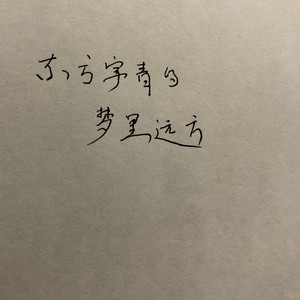 东方字青的
梦里远方